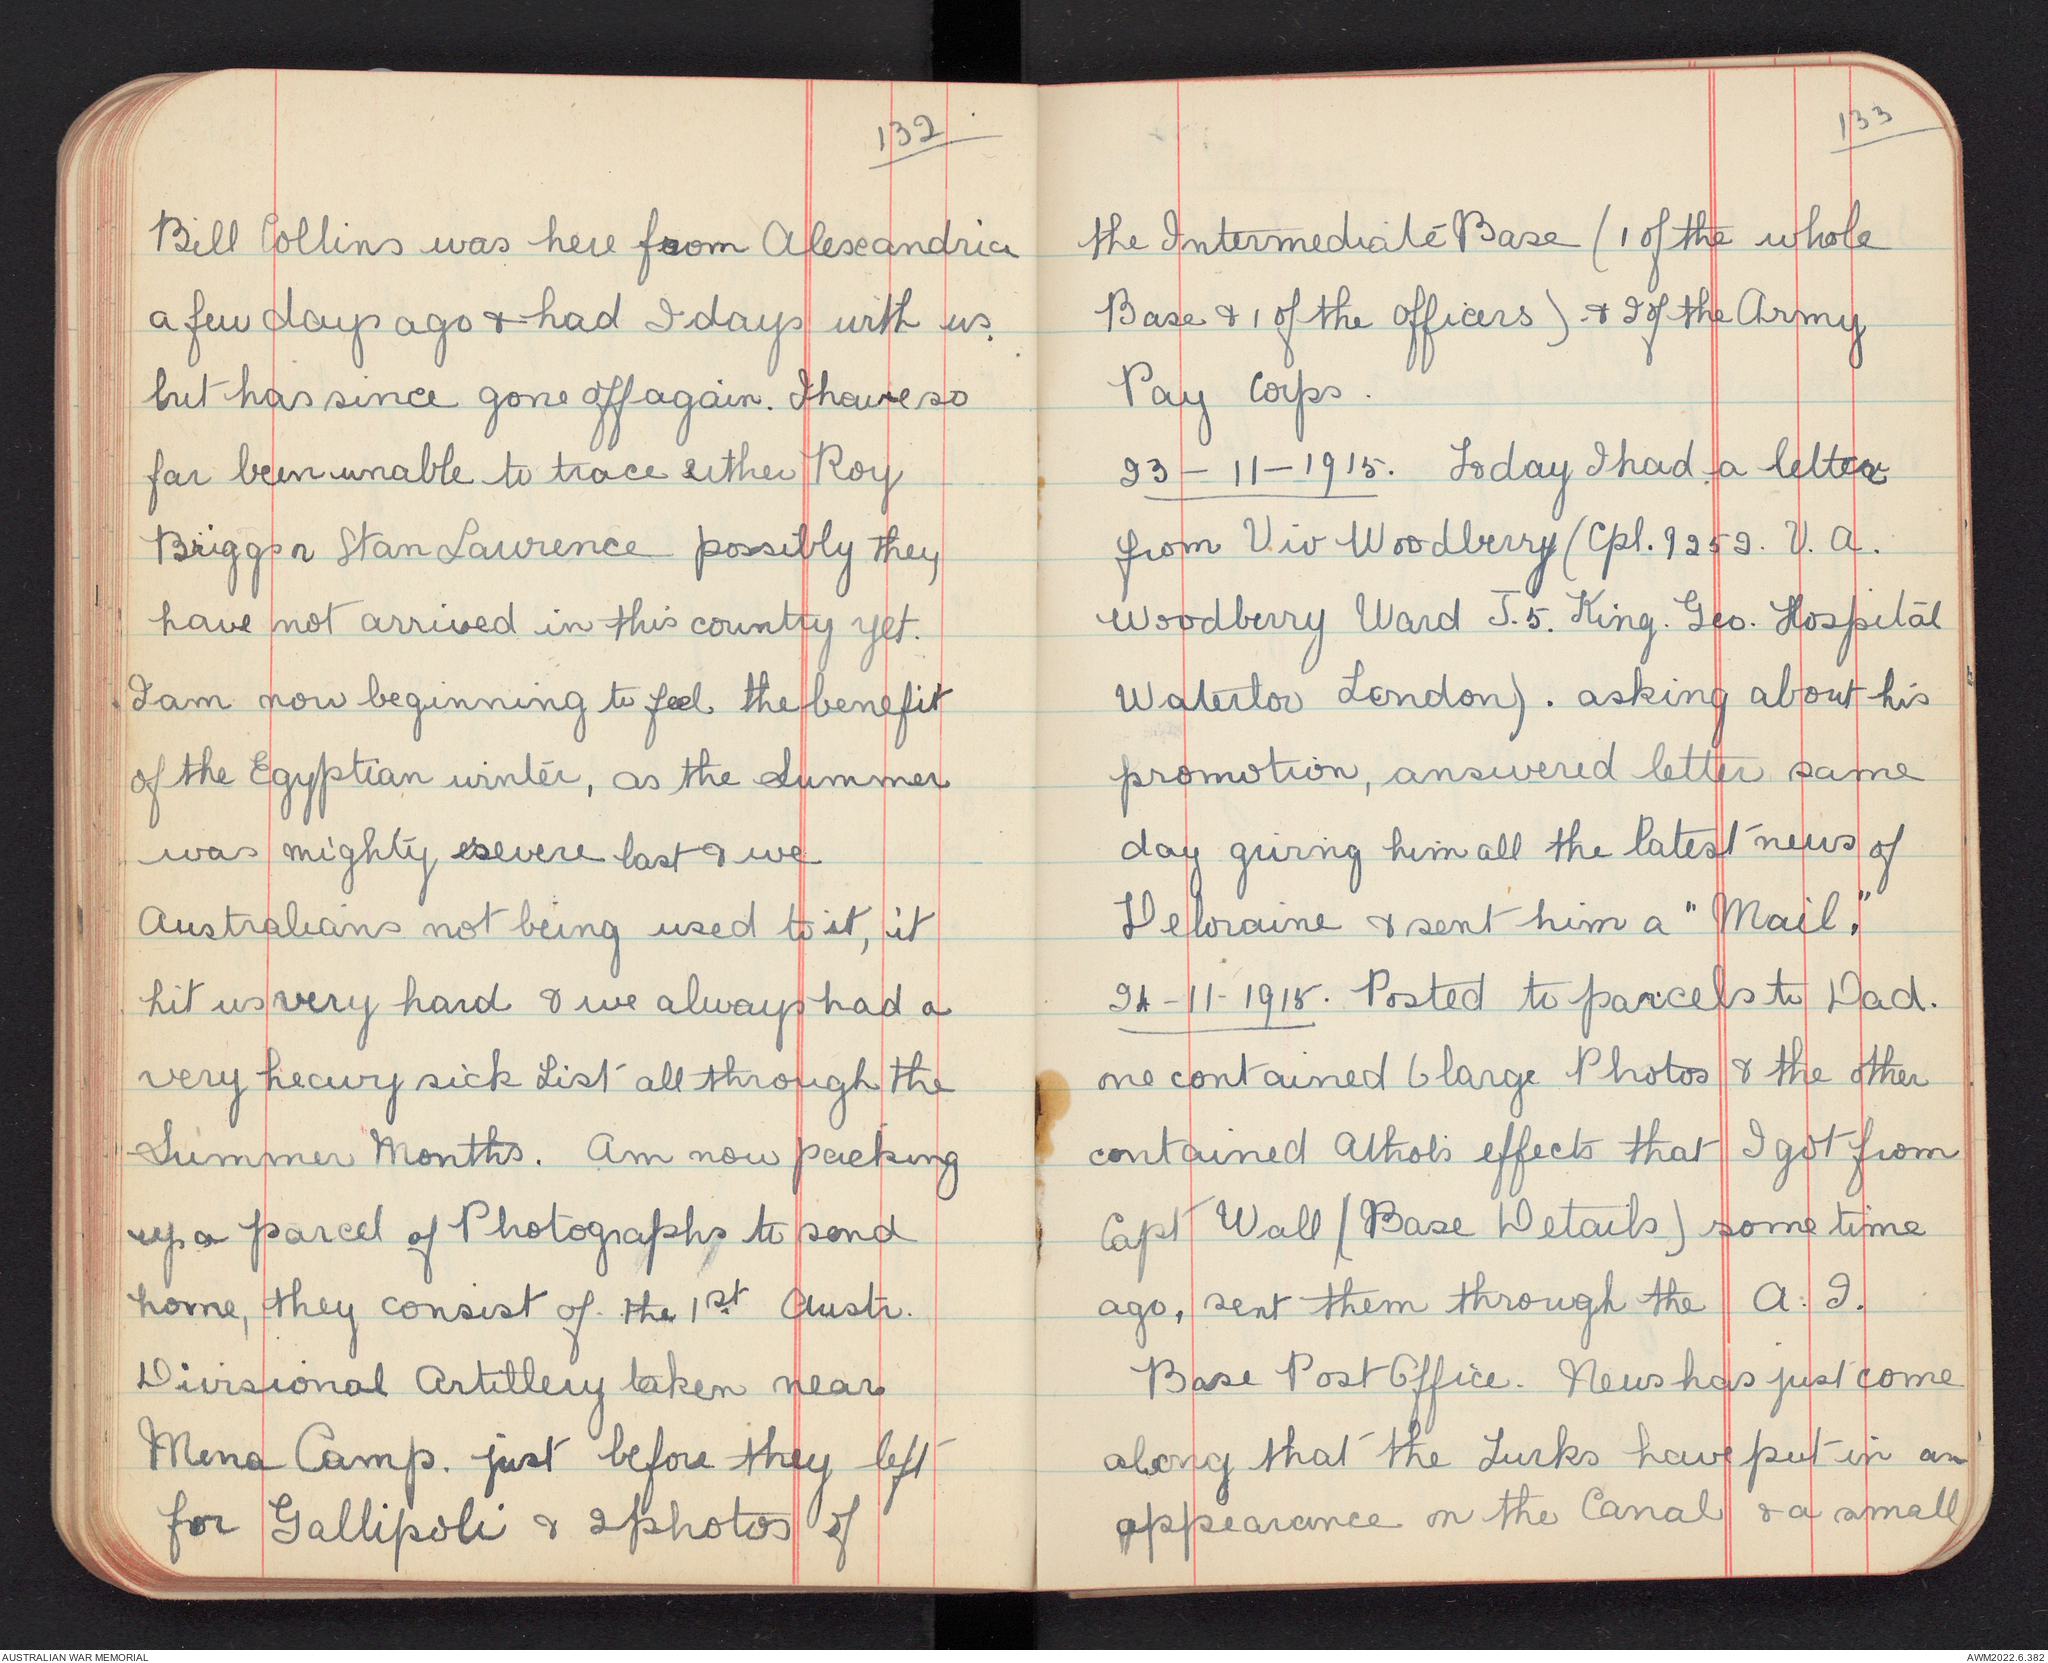 132
Bill Collins was here from Alexandria
a few days ago & had 2 days with us
but has since gone off again. I have so
far been unable to trace either Roy
Briggs or Stan Laurence possibly they
have not arrived in this country yet.
I am now beginning to feel the benefit
of the Egyptian winter, as the Summer
was mighty severe last & we
Australians not being used to it, it
hit us very hard & we always had a
very heavy sick List all through the
Summer Months. Am now packing
up a parcel of Photographs to send
home, they consist of the 1st Austr.
Divisional Artillery taken near
Mena Camp. just before they left
for Gallipoli & 2 photos of
133
the Intermediate Base (1 of the whole
Base & 1 of the officers) & 2 of the Army
Pay Corps.
23-11-1915. Today I had a letter
from Viv Woodberry (Cpl. 9252. V. A.
Woodberry Ward J.5. King. Geo. Hospital
Waterloo London). asking about his
promotion, answered letter same
day giving him all the latest news of
Deloraine & sent him a "Mail."
24-11-1915. Posted to parcels to Dad.
one contained 6 large Photos & the other
contained Athol's effects that I got from
Capt Wall (Base Details) some time
ago, sent them through the A. I.
Base Post Office. News has just come
along that the Turks have put in an
appearance on the Canal & a small
AUSTRALIAN WAR MEMORIAL
AWM2022.6.382